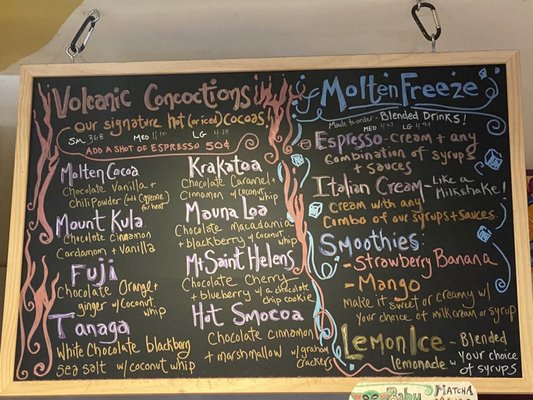 Volcanic Concoctions
our signature hot (or iced) cocoas!
SM 3.68 MED LG 4.38
ADD A SHOT OF ESPRESSO 50¢
Molten Cocoa
Chocolate Vanilla +
Chili Powder (add cayenne
for heat)
Mount Kula
Chocolate cinnamon
Cardamom + Vanilla
Fuji
Chocolate Orange +
ginger w/ coconut
whip
Tanaga
White Chocolate blackberry
Sea salt w/ coconut whip
Krakatoa
Chocolate Caramel +
Cinnamon w/ coconut
whip
Mauna Loa
Chocolate macadamia
+ blackberry w/ coconut
whip
Mt Saint Helens
Chocolate Cherry
+ blueberry w/ a chocolate
chip cookie
Hot Smocoa
Chocolate cinnamon
+ marshmallow w/ graham
crackers
Molten Freeze
Made to order - Blended Drinks!
MED LG
Espresso - cream + any
combination of syrups
+ sauces
Italian Cream - Like a
Milkshake!
cream with any
Combo of our syrups + sauces.
Smoothies:
- Strawberry Banana
- Mango
make it sweet or creamy w/
your choice of milk cream or syrup
Lemon Ice - Blended
lemonade w/ your choice
of syrups
Baby
MATCHA